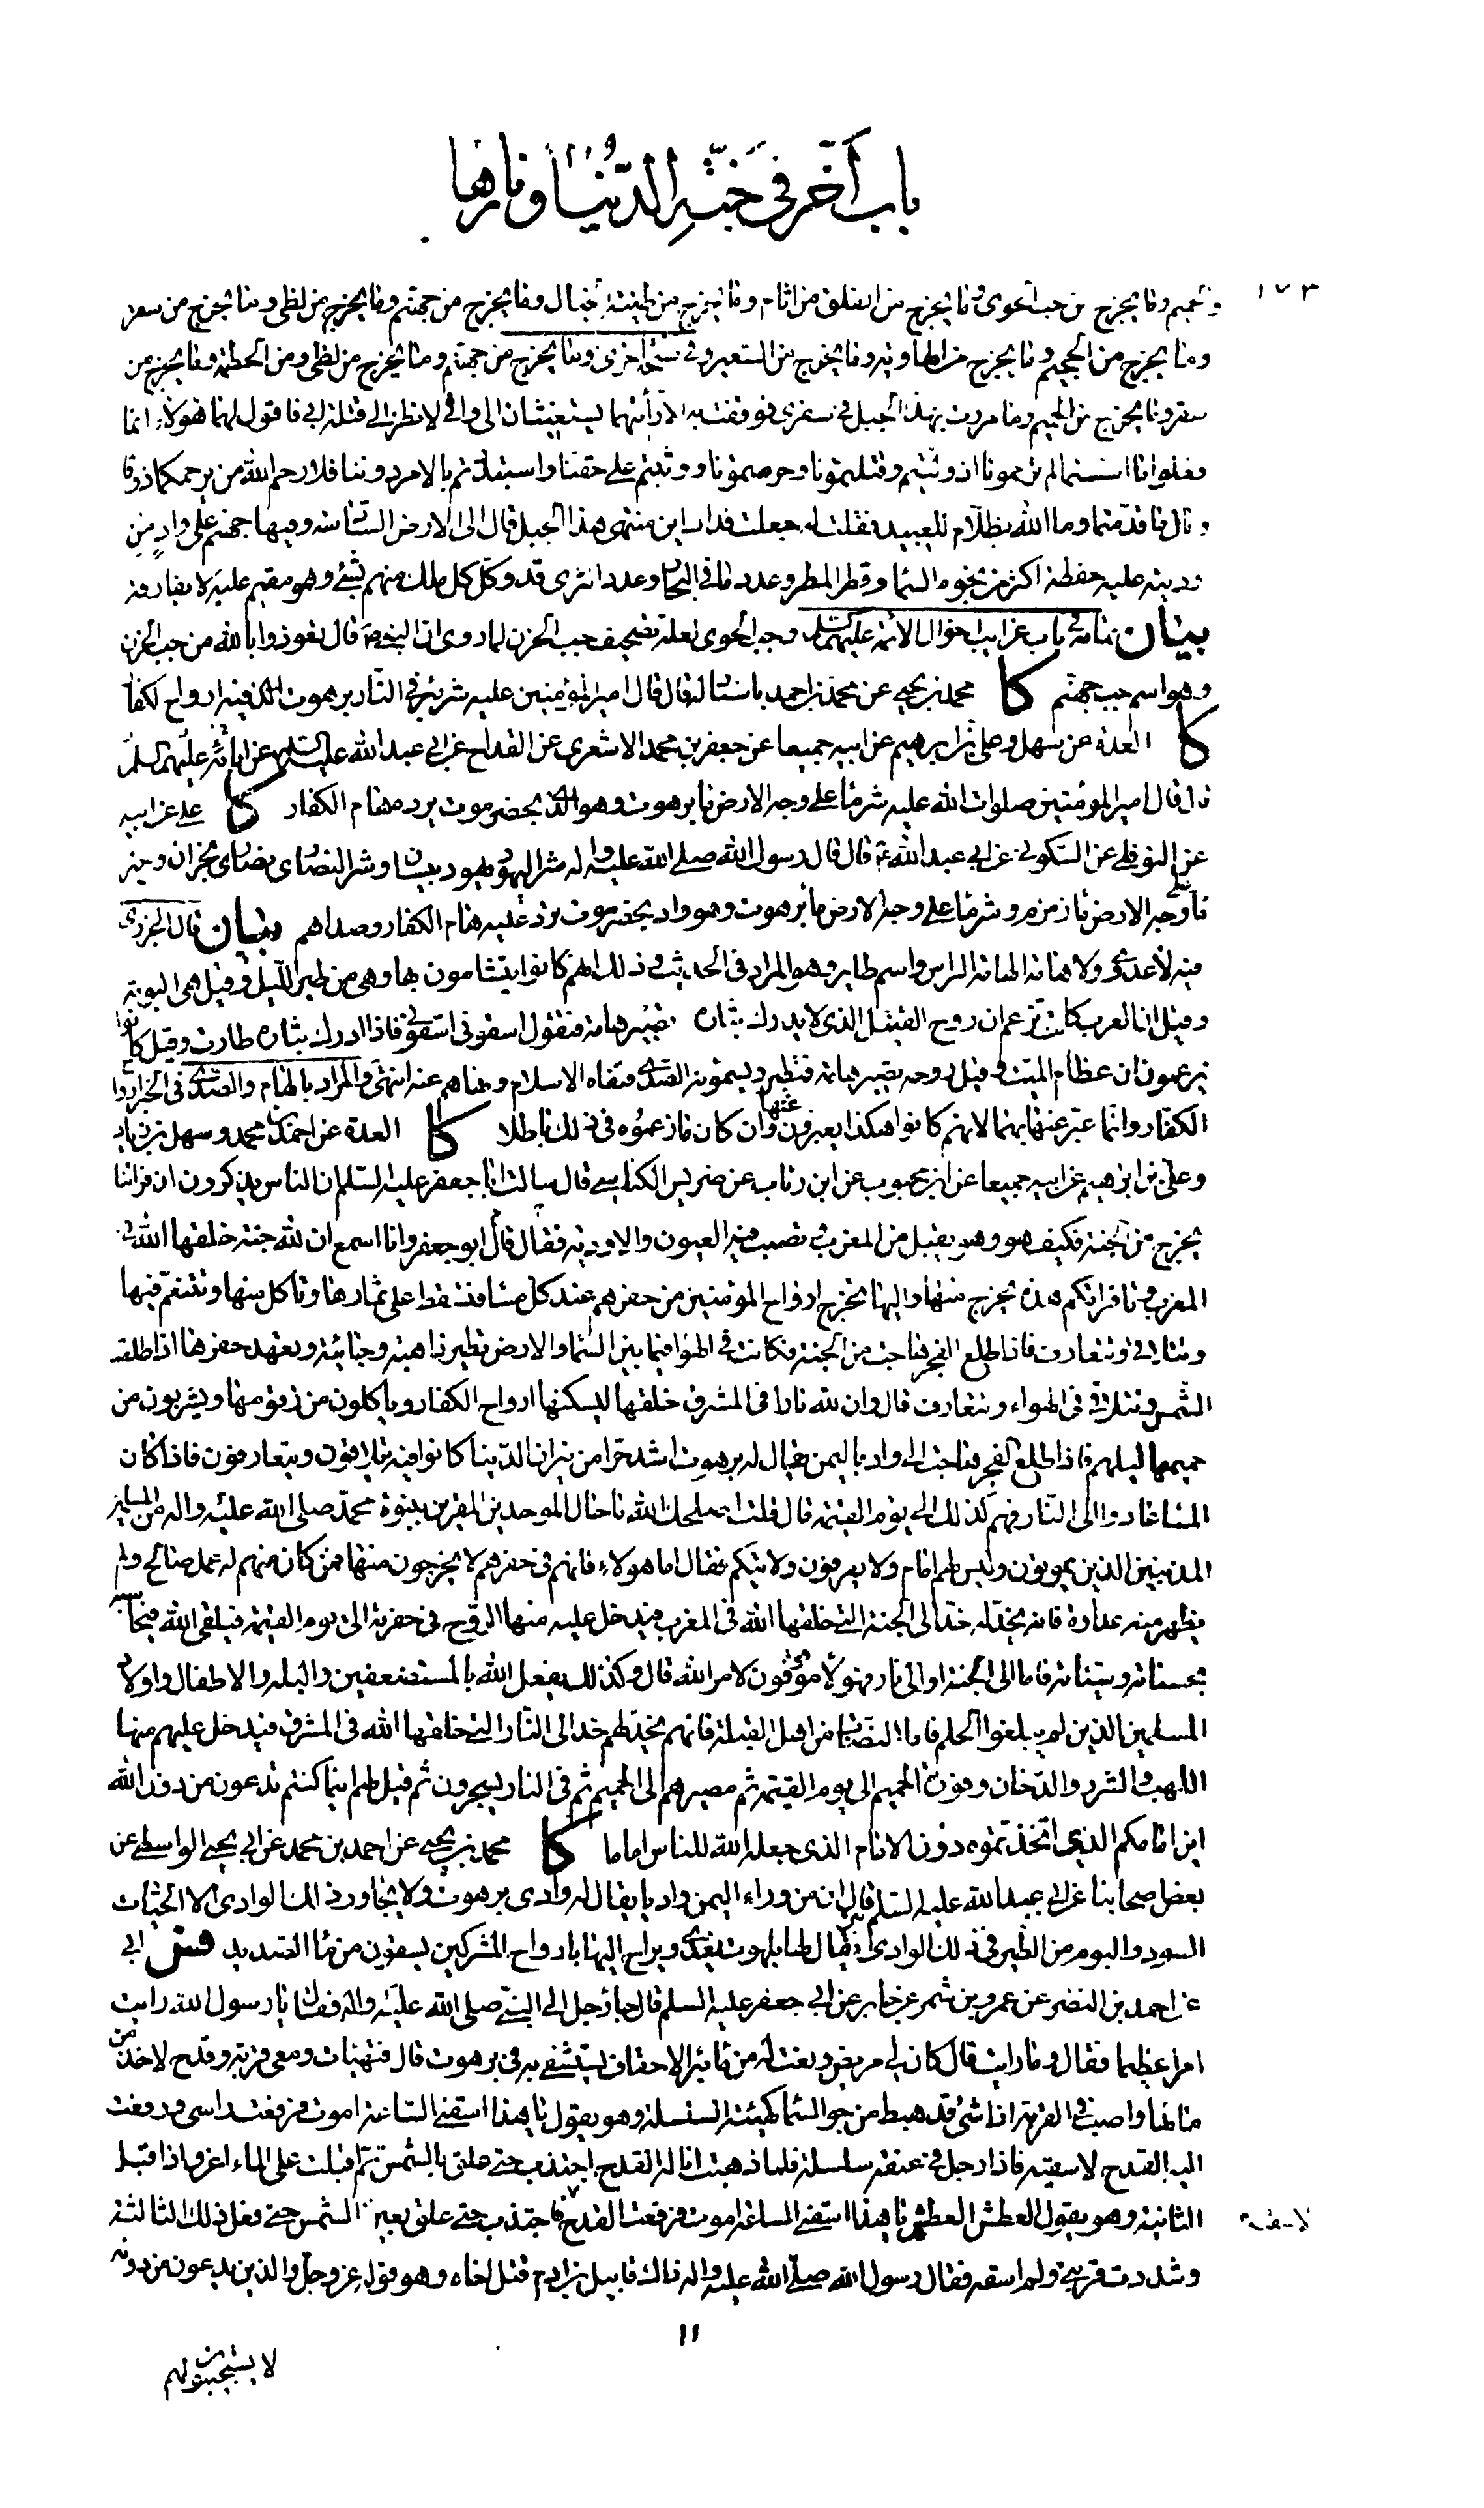 باب آخر فی جنّة الدّنیا و نارها
١٧٣
والحمیم وما یخرج من جب الحوی وما یخرج من الفلق من اثام وما یخرج من طینة خبال وما یخرج من جهنم وما یخرج من لظی وما یخرج من سقر
وما یخرج من الجحیم وما یخرج من الهاویة وما یخرج من السعیر وفی نسخة اخری وما یخرج من جهنم وما یخرج من لظی ومن الحطمة وما یخرج من
سقر وما یخرج من الحمیم وما مررت بهذا الجبل فی سفری فوقفت به الا رأیتهما یستغیثان الی وانی لانظر الی قتلة ابی فاقول لهما هؤلاء انما
فعلوا ما اسستما لم ترحمونا اذ ولّیتم وقتلتمونا وحرمتمونا ووثبتم علی حقنا واستبددتم بالامر دوننا فلا رحم الله من یرحمکما ذوقا
وبال ما قدّمتما وما الله بظلّام للعبید فقلت له جعلت فداک این منتهی هذا الجبل قال الی الارض السّادسة وفیها جهنم علی وادٍ من
اودیته علیه حفظة اکثر من نجوم السّماء وقطر المطر وعدد ما فی البحار وعدد الثری قد وکّل کل ملک منهم بشیء وهو مقیم علیه لا یفارقه
بیان تمامه فی باب غرایب احوال الائمة علیهم السلم وجب الحوی لعله تصحیف جب الحزن لما روی ان النبی ص قال تعوذوا بالله من جب الحزن
وهو اسم جب جهنم کا محمد بن یحیی عن محمد بن احمد باسناد له قال قال امیر المؤمنین علیه شر بئر فی النّار برهوت الّذی فیه ارواح الکفّار
کا العدة عن سهل وعلی بن ابرهیم عن ابیه جمیعا عن جعفر بن محمد الاشعری عن القداح عن ابی عبد الله علیه السلم عن ابائه علیهم السلم
قال قال امیر المؤمنین صلوات الله علیه شر ماء علی وجه الارض ماء برهوت وهو الّذی بحضرموت یرده هام الکفار کا علی عن ابیه
عن النوفلی عن السّکونی عن ابی عبد الله ع قال قال رسول الله صلی الله علیه واله شر الیهود یهود بیسان وشر النصاری نصاری نجران وخیر
ماء علی وجه الارض ماء زمزم وشر ماء علی وجه الارض ماء برهوت وهو واد بحضرموت ترد علیه هام الکفار وصداهم بیان قال الجزری
فیه لا عدوی ولا هامة الهامة الراس واسم طایر وهو المراد فی الحدیث وذلک انهم کانوا یتشامون بها وهی من طیر اللّیل وقیل هی البومة
وقیل ان العرب کانت تزعم ان روح القتیل الذی لا یدرک بثاره تصیر هامة فتقول اسقونی اسقونی فاذا ادرک بثاره طارت وقیل کانوا
یزعمون ان عظام المیت وقیل روحه تصیر هامة فتطیر ویسمونه الصّدی فنفاه الاسلام ونهاهم عنه انتهی والمراد بالهام والصّدی فی الخبر ارواح
الکفّار وانما عبّر عنها بهما لانهم کانوا هکذا یعبرون عنها وان کان ما زعموه فی ذلک باطلا کا العدة عن احمد بن محمد وسهل بن زیاد
وعلی بن ابرهیم عن ابیه جمیعا عن ابن محبوب عن ابن رئاب عن ضریس الکناسی قال سالت ابا جعفر علیه السلم ان الناس یذکرون ان فراتنا
یخرج من الجنة فکیف هو وهو یقبل من المغرب وتصب فیه العیون والاودیة فقال قال ابو جعفر وانا اسمع ان لله جنة خلقها الله فی
المغرب وماء فراتکم هذه یخرج منها والیها تخرج ارواح المؤمنین من حفرهم عند کل مساء فتسقط علی ثمارها وتاکل منها وتتنعّم فیها
وتتلاقی وتتعارف فاذا طلع الفجر هاجت من الجنة فکانت فی الهواء فیما بین السّماء والارض تطیر ذاهبة وجائیة وتعهد حفرها اذا طلعت
الشّمس وتتلاقی فی الهواء وتتعارف قال وان لله نارا فی المشرق خلقها لیسکنها ارواح الکفار ویاکلون من زقومها ویشربون من
حمیمها لیلهم فاذا طلع الفجر هاجت الی واد بالیمن یقال له برهوت اشد حرّا من نیران الدّنیا کانوا فیه یتلاقون ویتعارفون فاذا کان
المساء عادوا الی النّار فهم کذلک الی یوم القیمة قال قلت اصلحک الله ما حال الموحدین المقرین بنبوة محمّد صلی الله علیه واله من المسلمین
المذنبین الذین یموتون ولیس لهم امام ولا یعرفون ولایتکم فقال اما هولاء فانهم فی حفرهم لا یخرجون منها فمن کان منهم له عمل صالح ولم
یظهر منه عداوة فانه یخدّ له خدّا الی الجنة التی خلقها الله فی المغرب فیدخل علیه منها الرّوح فی حفرته الی یوم القیمة فیلقی الله فیحاسبه
بحسناته وسیّئاته فاما الی الجنة او الی نار فهولاء موقوفون لامر الله قال وکذلک یفعل الله بالمستضعفین والبله والاطفال واولاد
المسلمین الذین لم یبلغوا الحلم فاما النصّاب من اهل القبلة فانهم یخدّ لهم خدا الی النّار التی خلقها الله فی المشرق فیدخل علیهم منها
اللهب والشرر والدّخان وفورة الحمیم الی یوم القیمة ثم مصیرهم الی الحمیم ثم فی النار یسجرون ثم قیل لهم اینما کنتم تدعون من دون الله
این امامکم الذی اتخذتموه دون الامام الذی جعله الله للناس اماما کا محمد بن یحیی عن احمد بن محمد عن ابی یحیی الواسطی عن
بعض اصحابنا عن ابی عبد الله علیه السلم قال ان من وراء الیمن وادیا یقال له وادی برهوت ولا یجاور ذلک الوادی الا الحیّات
السود والبوم من الطّیر فی ذلک الوادی بئر یقال لها بلهوت یغدی ویراح الیها بارواح المشرکین یسقون من ماء الصّدید فس ابی
عن احمد بن النضر عن عمرو بن شمر عن جابر عن ابی جعفر علیه السلم قال جاء رجل الی النبی صلی الله علیه واله فقال یا رسول الله رایت
امرا عظیما فقال وما رایت قال کان لی مریض ونعت له من ماء بئر الاحقاف یستشفی به فی برهوت قال فتهیّات ومعی قربة وقدح لاخذ من
مائها واصب فی القربة اذا شیء قد هبط من جو السّماء کهیئة السّلسلة وهو یقول یا هذا اسقنی السّاعة اموت فرفعت راسی ورفعت
الیه القدح لاسقیه فاذا رجل فی عنقه سلسلة فلما ذهبت اناوله القدح اجتذب حتی علق بالشّمس ثم اقبلت علی الماء اغرف اذ اقبل
الثانیة وهو یقول العطش العطش یا هذا اسقنی السّاعة اموت فرفعت القدح لاسقیه فاجتذب حتی علق بعین الشّمس حتی فعل ذلک الثالثة
وشددت قربتی ولم اسقه فقال رسول الله صلی الله علیه واله ذاک قابیل بن ادم قتل اخاه وهو قوله عزّ وجلّ والذین یدعون من دونه
١١
لا یستجیبون لهم